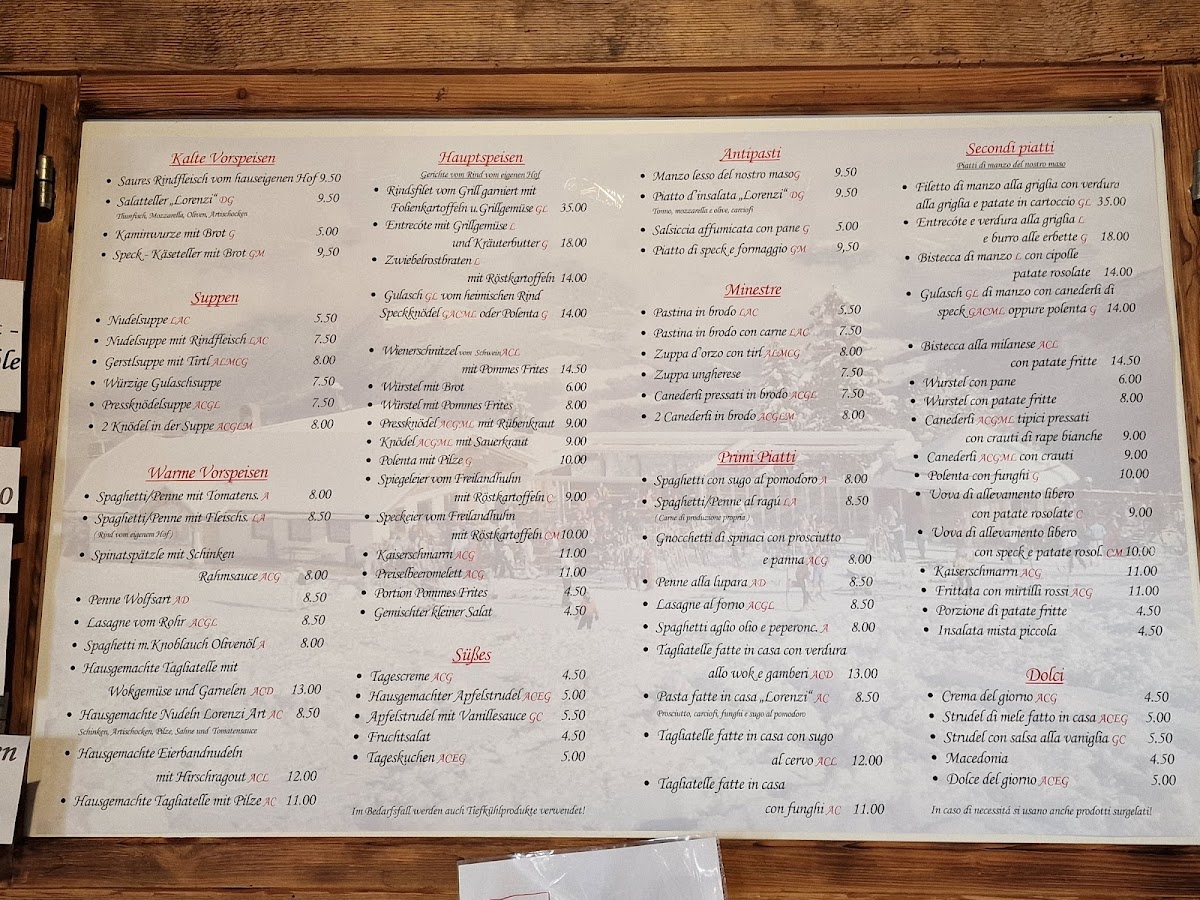 Kalte Vorspeisen
• Saures Rindfleisch vom hauseigenen Hof 9.50
• Salatteller „Lorenzi“ DG 9.50
Thunfisch, Mozzarella, Oliven, Artischocken
• Kaminwurze mit Brot G 5.00
• Speck - Käseteller mit Brot GM 9,50
Suppen
• Nudelsuppe LAC 5.50
• Nudelsuppe mit Rindfleisch LAC 7.50
• Gerstlsuppe mit Tirtl ALMCG 8.00
• Würzige Gulaschsuppe 7.50
• Pressknödelsuppe ACGL 7.50
• 2 Knödel in der Suppe ACGLM 8.00
Warme Vorspeisen
• Spaghetti/Penne mit Tomatens. A 8.00
• Spaghetti/Penne mit Fleischs. LA 8.50
( Rind vom eigenem Hof )
• Spinatspätzle mit Schinken
Rahmsauce ACG 8.00
• Penne Wolfsart AD 8.50
• Lasagne vom Rohr ACGL 8.50
• Spaghetti m.Knoblauch Olivenöl A 8.00
• Hausgemachte Tagliatelle mit
Wokgemüse und Garnelen ACD 13.00
• Hausgemachte Nudeln Lorenzi Art AC 8.50
Schinken, Artischocken, Pilze, Sahne und Tomatensauce
• Hausgemachte Eierbandnudeln
mit Hirschragout ACL 12.00
• Hausgemachte Tagliatelle mit Pilze AC 11.00
Hauptspeisen
Gerichte vom Rind vom eigenen Hof
• Rindsfilet vom Grill garniert mit
Folienkartoffeln u.Grillgemüse GL 35.00
• Entrecóte mit Grillgemüse L
und Kräuterbutter G 18.00
• Zwiebelrostbraten L
mit Röstkartoffeln 14.00
• Gulasch GL vom heimischen Rind
Speckknödel GACML oder Polenta G 14.00
• Wienerschnitzel vom Schwein ACL
mit Pommes Frites 14.50
• Würstel mit Brot 6.00
• Würstel mit Pommes Frites 8.00
• Pressknödel ACGML mit Rübenkraut 9.00
• Knödel ACGML mit Sauerkraut 9.00
• Polenta mit Pilze G 10.00
• Spiegeleier vom Freilandhuhn
mit Röstkartoffeln C 9.00
• Speckeier vom Freilandhuhn
mit Röstkartoffeln CM 10.00
• Kaiserschmarrn ACG 11.00
• Preiselbeeromelett ACG 11.00
• Portion Pommes Frites 4.50
• Gemischter kleiner Salat 4.50
Süßes
• Tagescreme ACG 4.50
• Hausgemachter Apfelstrudel ACEG 5.00
• Apfelstrudel mit Vanillesauce GC 5.50
• Fruchtsalat 4.50
• Tageskuchen ACEG 5.00
Im Bedarfsfall werden auch Tiefkühlprodukte verwendet!
Antipasti
• Manzo lesso del nostro masoG 9.50
• Piatto d’insalata „Lorenzi“ DG 9.50
Tonno, mozzarella e olive, carciofi
• Salsiccia affumicata con pane G 5.00
• Piatto di speck e formaggio GM 9,50
Minestre
• Pastina in brodo LAC 5.50
• Pastina in brodo con carne LAC 7.50
• Zuppa d’orzo con tirl ALMCG 8.00
• Zuppa ungherese 7.50
• Canederli pressati in brodo ACGL 7.50
• 2 Canederli in brodo ACGLM 8.00
Primi Piatti
• Spaghetti con sugo al pomodoro A 8.00
• Spaghetti/Penne al ragú LA 8.50
( Carne di produzione propria )
• Gnocchetti di spinaci con prosciutto
e panna ACG 8.00
• Penne alla lupara AD 8.50
• Lasagne al forno ACGL 8.50
• Spaghetti aglio olio e peperonc. A 8.00
• Tagliatelle fatte in casa con verdura
allo wok e gamberi ACD 13.00
• Pasta fatte in casa „Lorenzi“ AC 8.50
Prosciutto, carciofi, funghi e sugo al pomodoro
• Tagliatelle fatte in casa con sugo
al cervo ACL 12.00
• Tagliatelle fatte in casa
con funghi AC 11.00
Secondi piatti
Piatti di manzo del nostro maso
• Filetto di manzo alla griglia con verduro
alla griglia e patate in cartoccio GL 35.00
• Entrecóte e verdura alla griglia L
e burro alle erbette G 18.00
• Bistecca di manzo L con cipolle
patate rosolate 14.00
• Gulasch GL di manzo con canederli di
speck GACML oppure polenta G 14.00
• Bistecca alla milanese ACL
con patate fritte 14.50
• Wurstel con pane 6.00
• Wurstel con patate fritte 8.00
• Canederli ACGML tipici pressati
con crauti di rape bianche 9.00
• Canederli ACGML con crauti 9.00
• Polenta con funghi G 10.00
• Uova di allevamento libero
con patate rosolate C 9.00
• Uova di allevamento libero
con speck e patate rosol. CM 10.00
• Kaiserschmarrn ACG 11.00
• Frittata con mirtilli rossi ACG 11.00
• Porzione di patate fritte 4.50
• Insalata mista piccola 4.50
Dolci
• Crema del giorno ACG 4.50
• Strudel di mele fatto in casa ACEG 5.00
• Strudel con salsa alla vaniglia GC 5.50
• Macedonia 4.50
• Dolce del giorno ACEG 5.00
In caso di necessitá si usano anche prodotti surgelati!